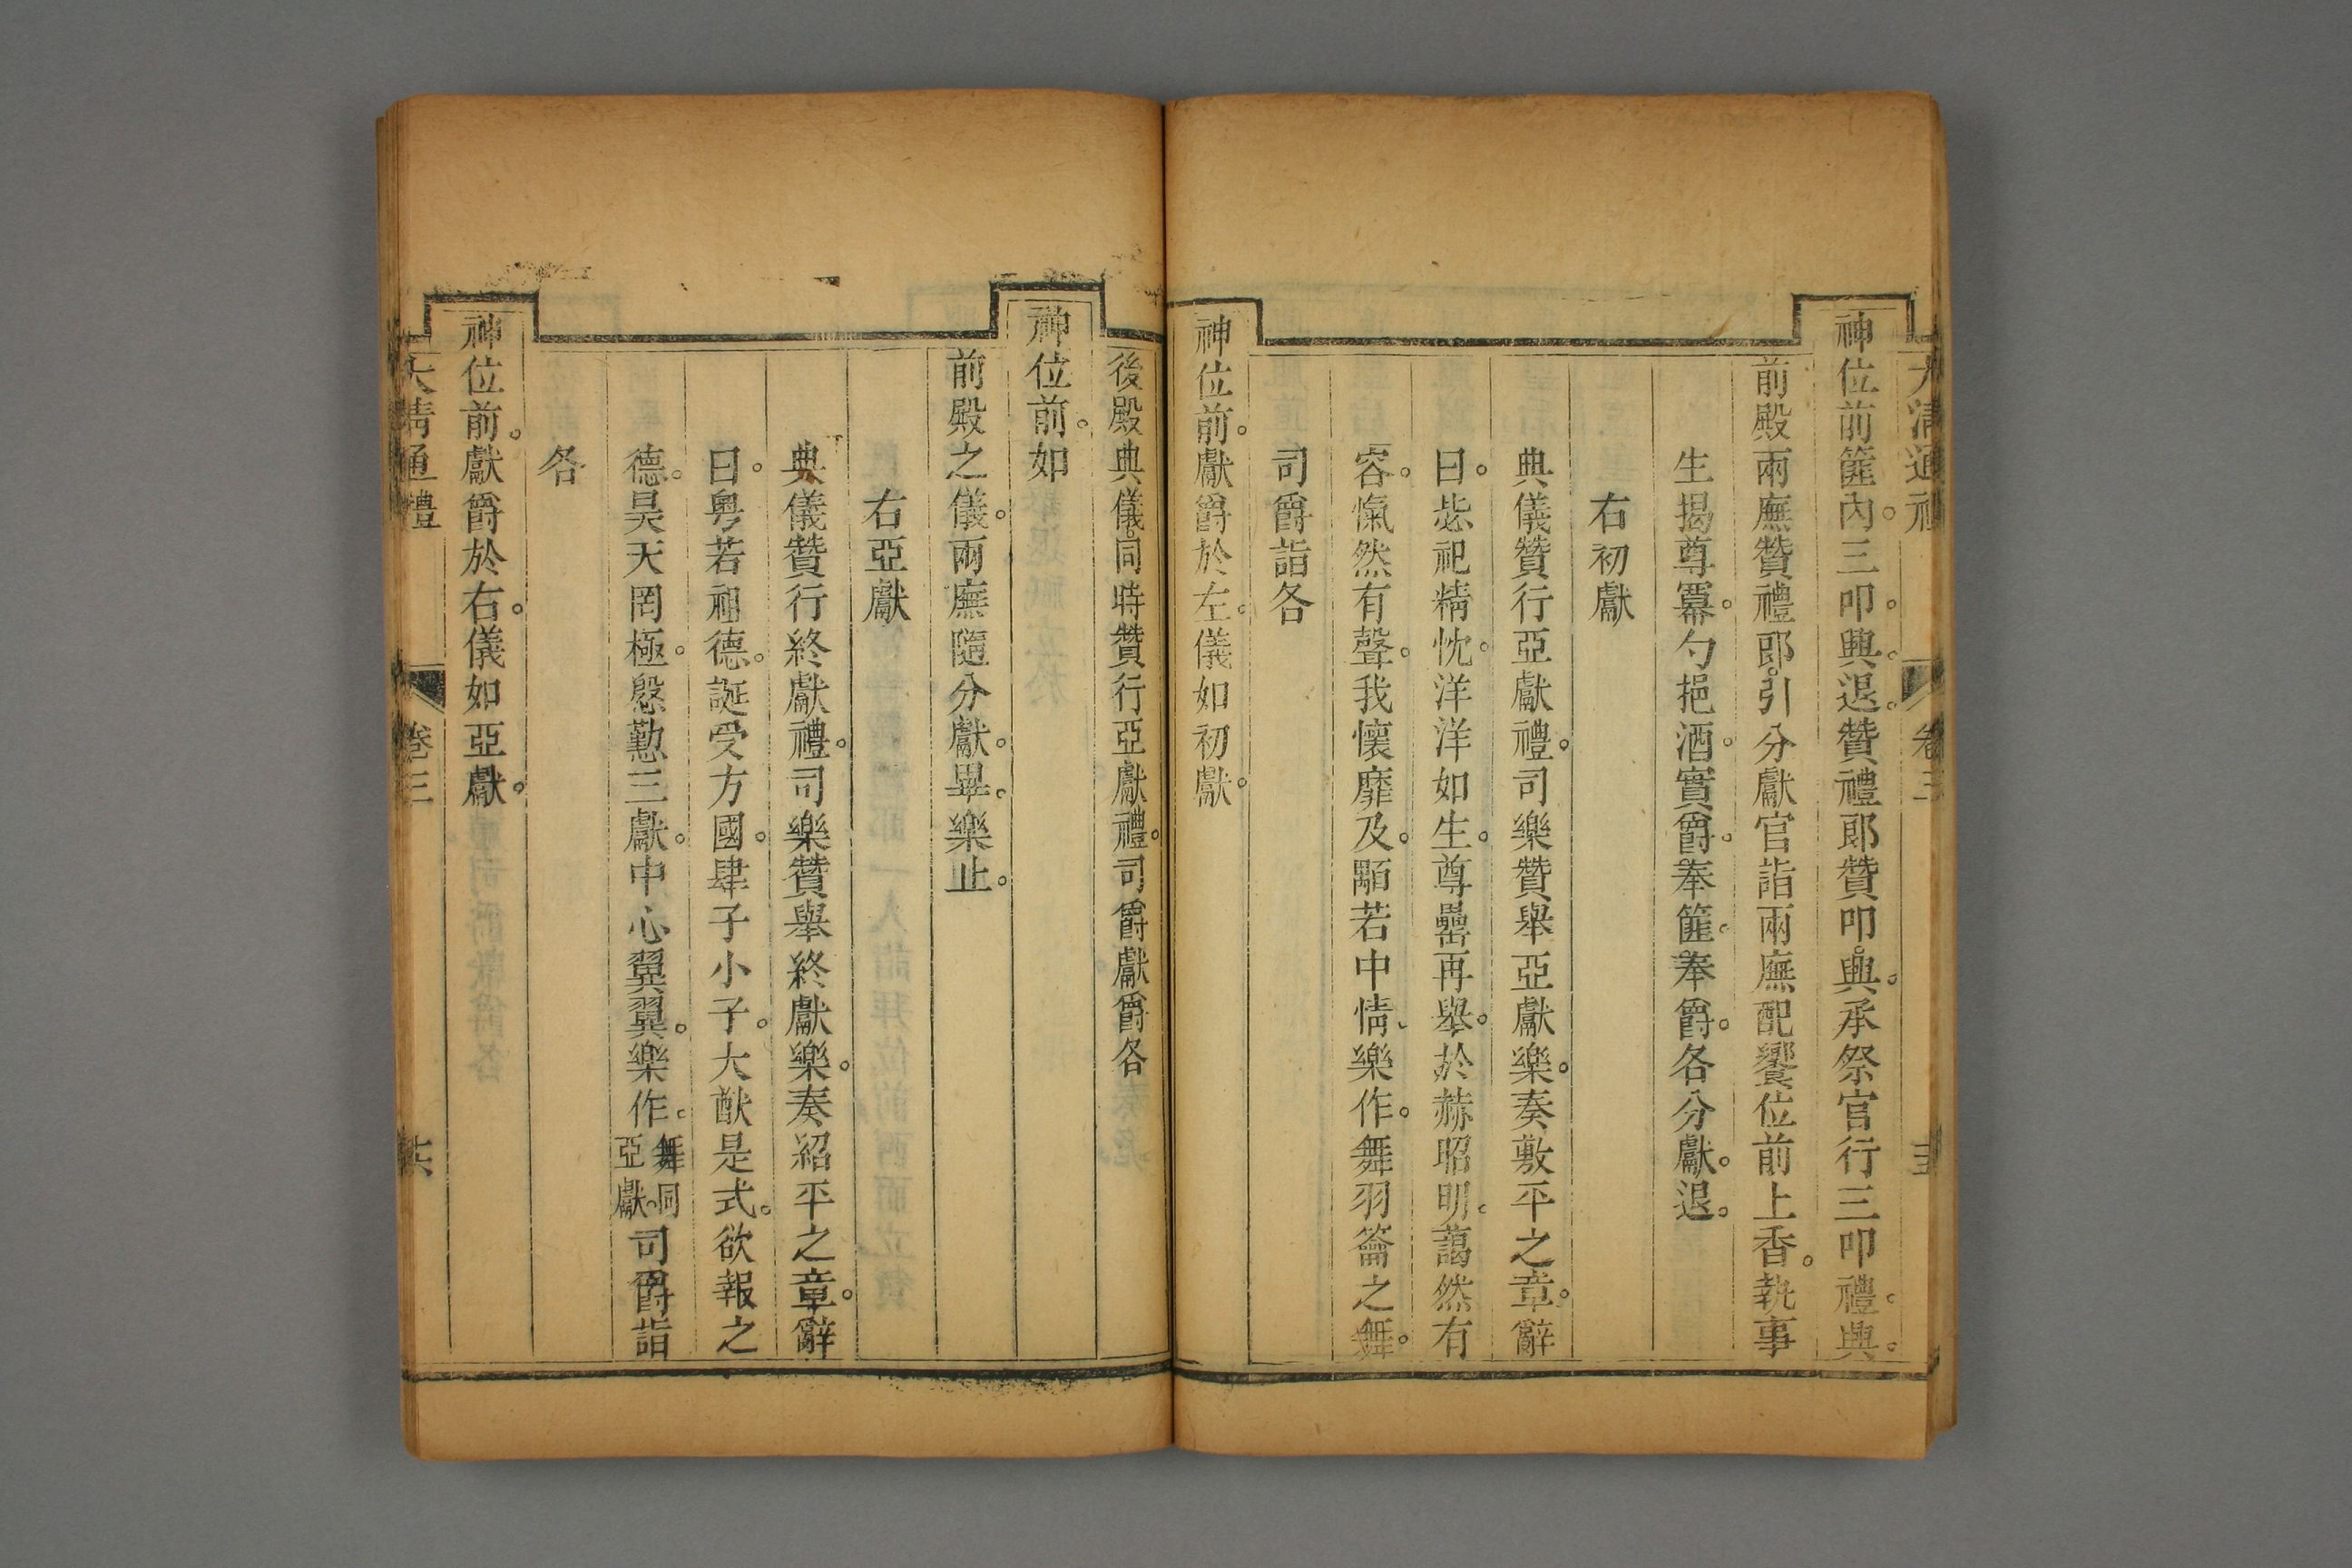 大清通禮 卷三
神位前篚內。三叩。興。退。贊禮郎贊叩。興。承祭官行三叩禮。興。
前殿兩廡贊禮郎。引分獻官詣兩廡配饗位前上香。執事
生揭尊冪。勺挹酒。實爵。奉篚。奉爵。各分獻。退。
右初獻
典儀贊行亞獻禮。司樂贊舉亞獻樂。奏敷平之章。辭
曰。毖祀精忱。洋洋如生。尊罍再舉。於赫昭明。藹然有
容。愾然有聲。我懷靡及。顒若中情。樂作。舞羽籥之舞。
司爵詣各
神位前。獻爵於左。儀如初獻。
後殿典儀。同時贊行亞獻禮。司爵獻爵各
神位前。如
前殿之儀。兩廡隨分獻。畢。樂止。
右亞獻
典儀贊行終獻禮。司樂贊舉終獻樂。奏紹平之章。辭
曰。粵若祖德。誕受方國。肆予小子。大猷是式。欲報之
德。昊天罔極。慇懃三獻。中心翼翼。樂作。舞同亞獻。司爵詣
各
神位前。獻爵於右。儀如亞獻。
大清通禮 卷三 六